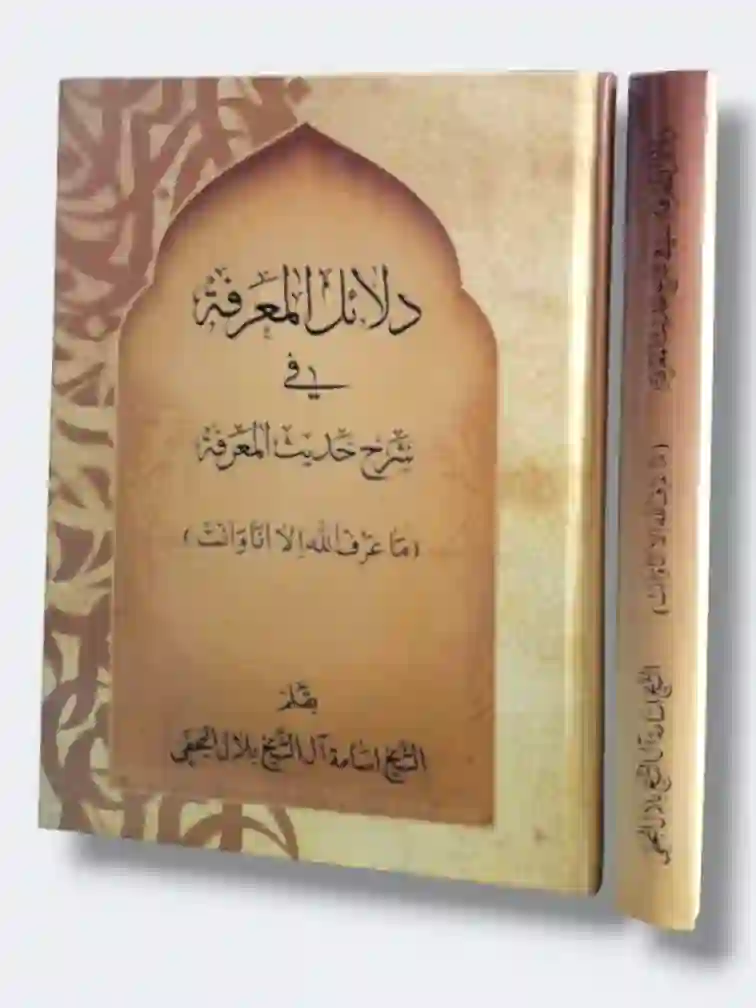 دلائل المعرفة
في
شرح حديث المعرفة
(ما عرف الله إلا انا وانت)
بقلم
الشيخ اسامة آل الشيخ بلال النجفي
دلائل المعرفة في شرح حديث المعرفة
(ما عرف الله إلا انا وانت)
الشيخ اسامة آل الشيخ بلال النجفي